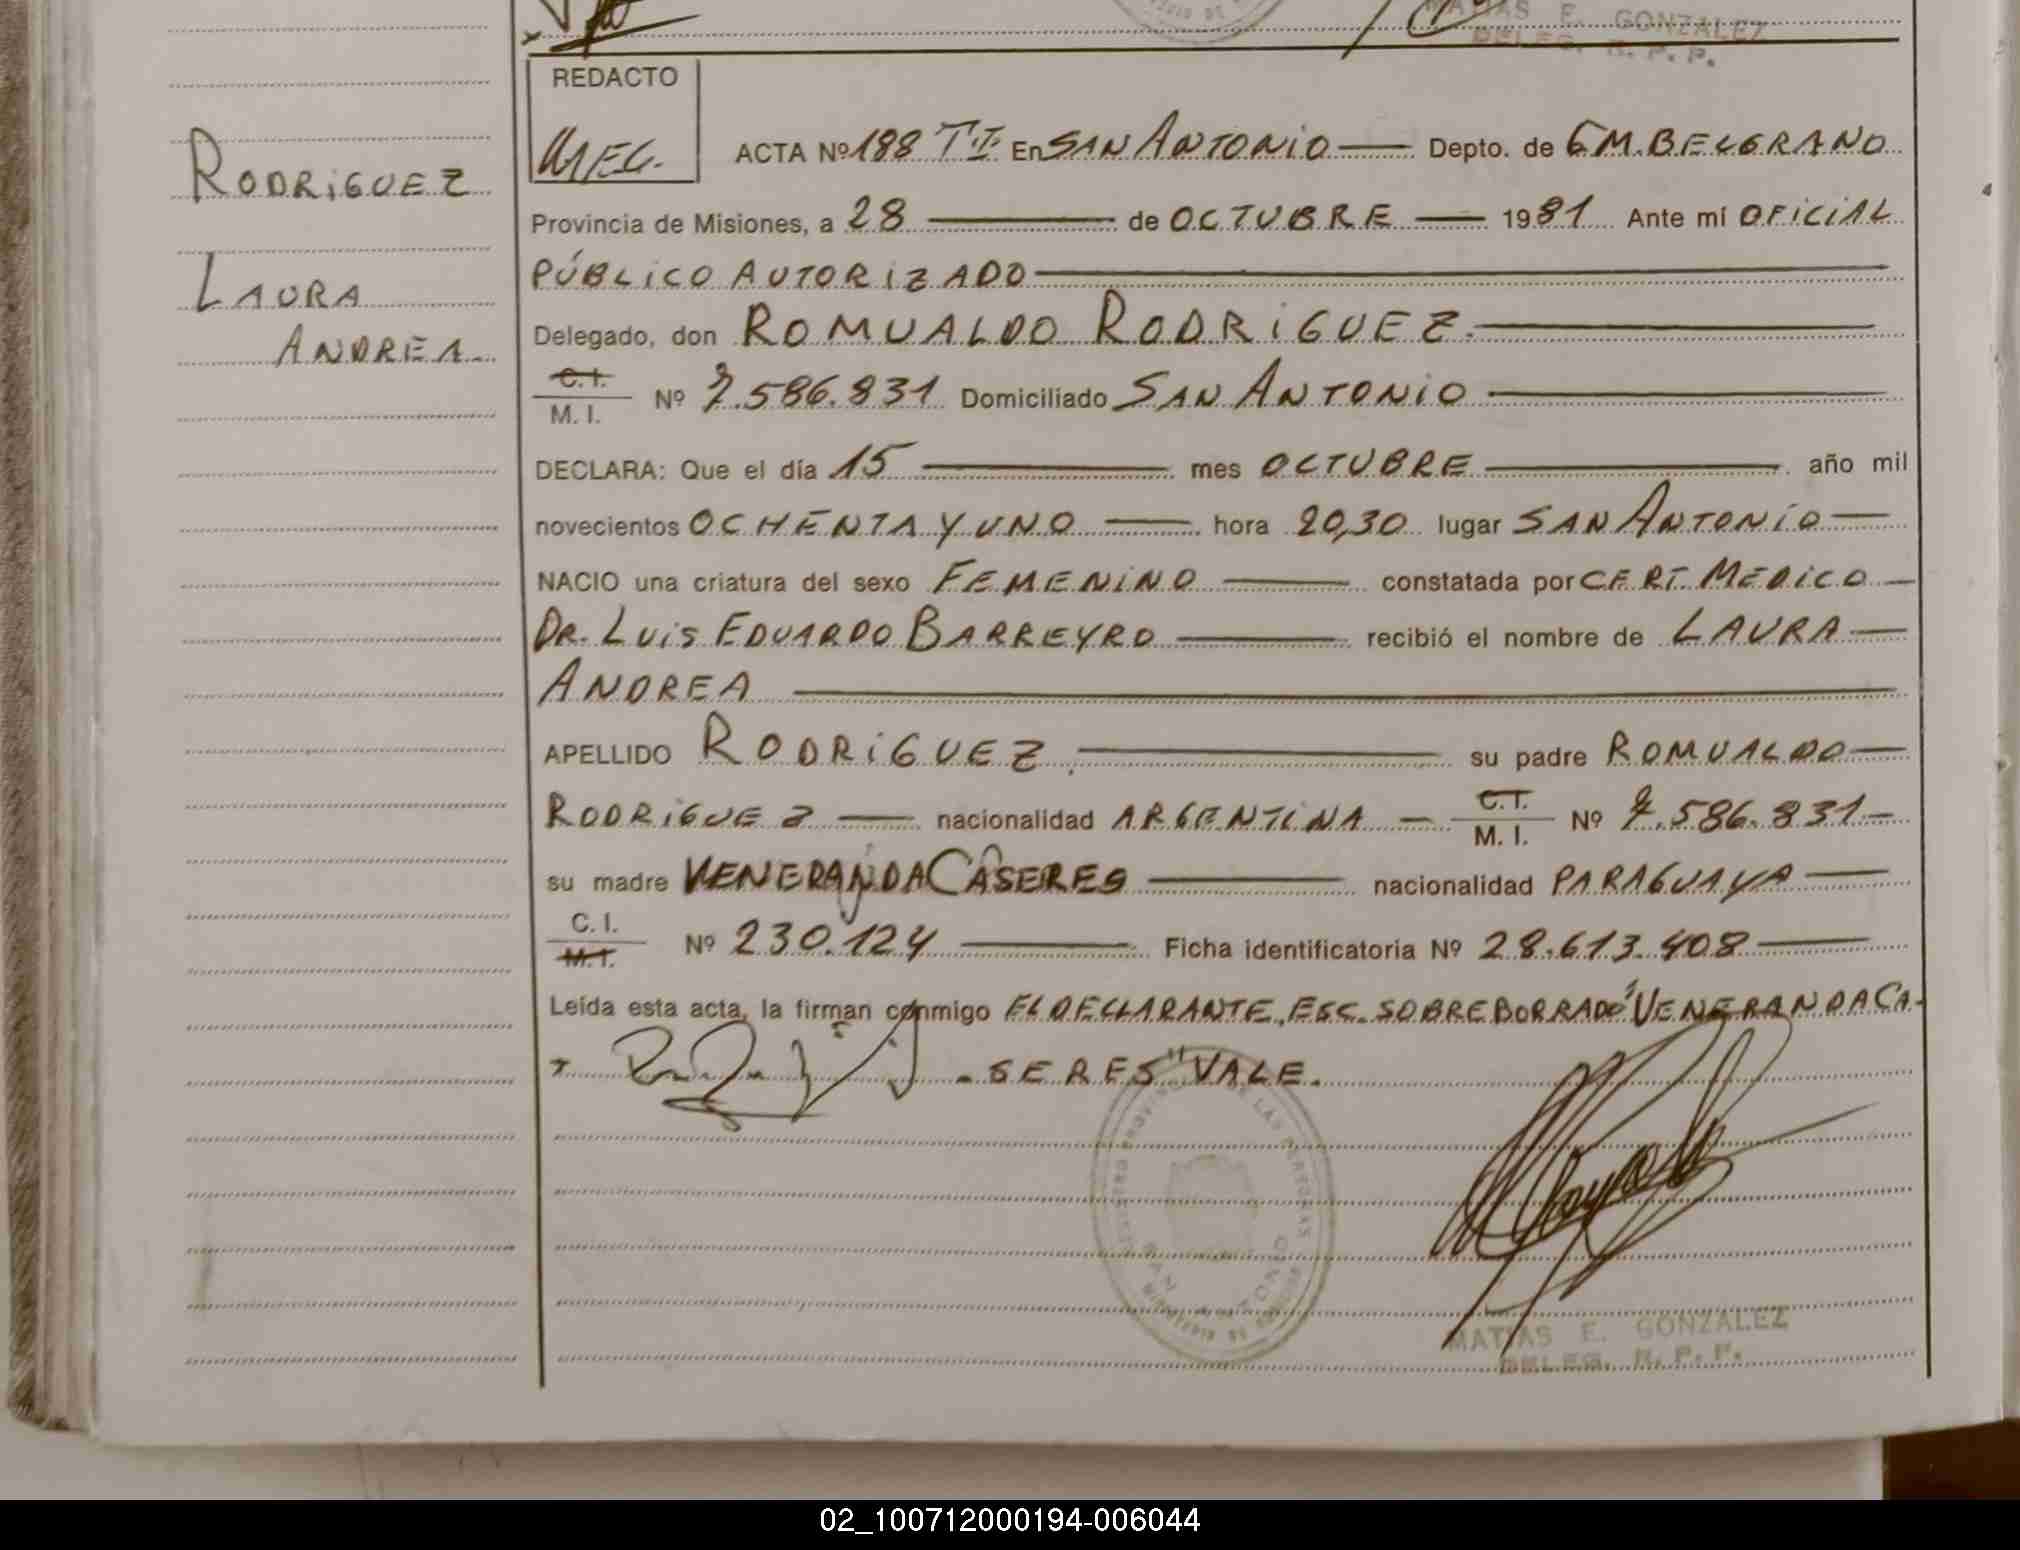 MATIAS E. GONZALEZ
DELEG. R. P. P.
REDACTO
RODRiGUEZ
LAURA
ANDREA
ACTA Nº 188 T.I En SAN ANTONiO Depto. de G M. BELGRANO
Provincia de Misiones, a 28 de OCTUBRE 1981 Ante mí OFiCiAL
PÚBLiCO AUTORiZADO
Delegado, don ROMUALDO RODRiGUEZ.
C. I.
M. I. Nº 7.586.831 Domiciliado SAN ANTONiO
DECLARA: Que el día 15 mes OCTUBRE año mil
novecientos OCHENTA Y UNO hora 20,30 lugar SAN ANTONiO
NACIO una criatura del sexo FEMENiNO constatada por CERT. MEDiCO
DR. LUiS EDUARDO BARREYRO recibió el nombre de LAURA
ANDREA
APELLIDO RODRiGUEZ. su padre ROMUALDO
RODRiGUEZ nacionalidad ARGENTiNA C. I.
M. I. Nº 7.586.831
su madre VENERANDA CASERES nacionalidad PARAGUAYA
C. I.
M. I. Nº 230.124 Ficha identificatoria Nº 28.613.408
Leída esta acta, la firman conmigo EL DECLARANTE. ESC. SOBREBORRADO "VENERANDA CA-
SERES" VALE.
SAN ANTONIO
MATIAS E. GONZALEZ
DELEG. R. P. P.
02_100712000194-006044